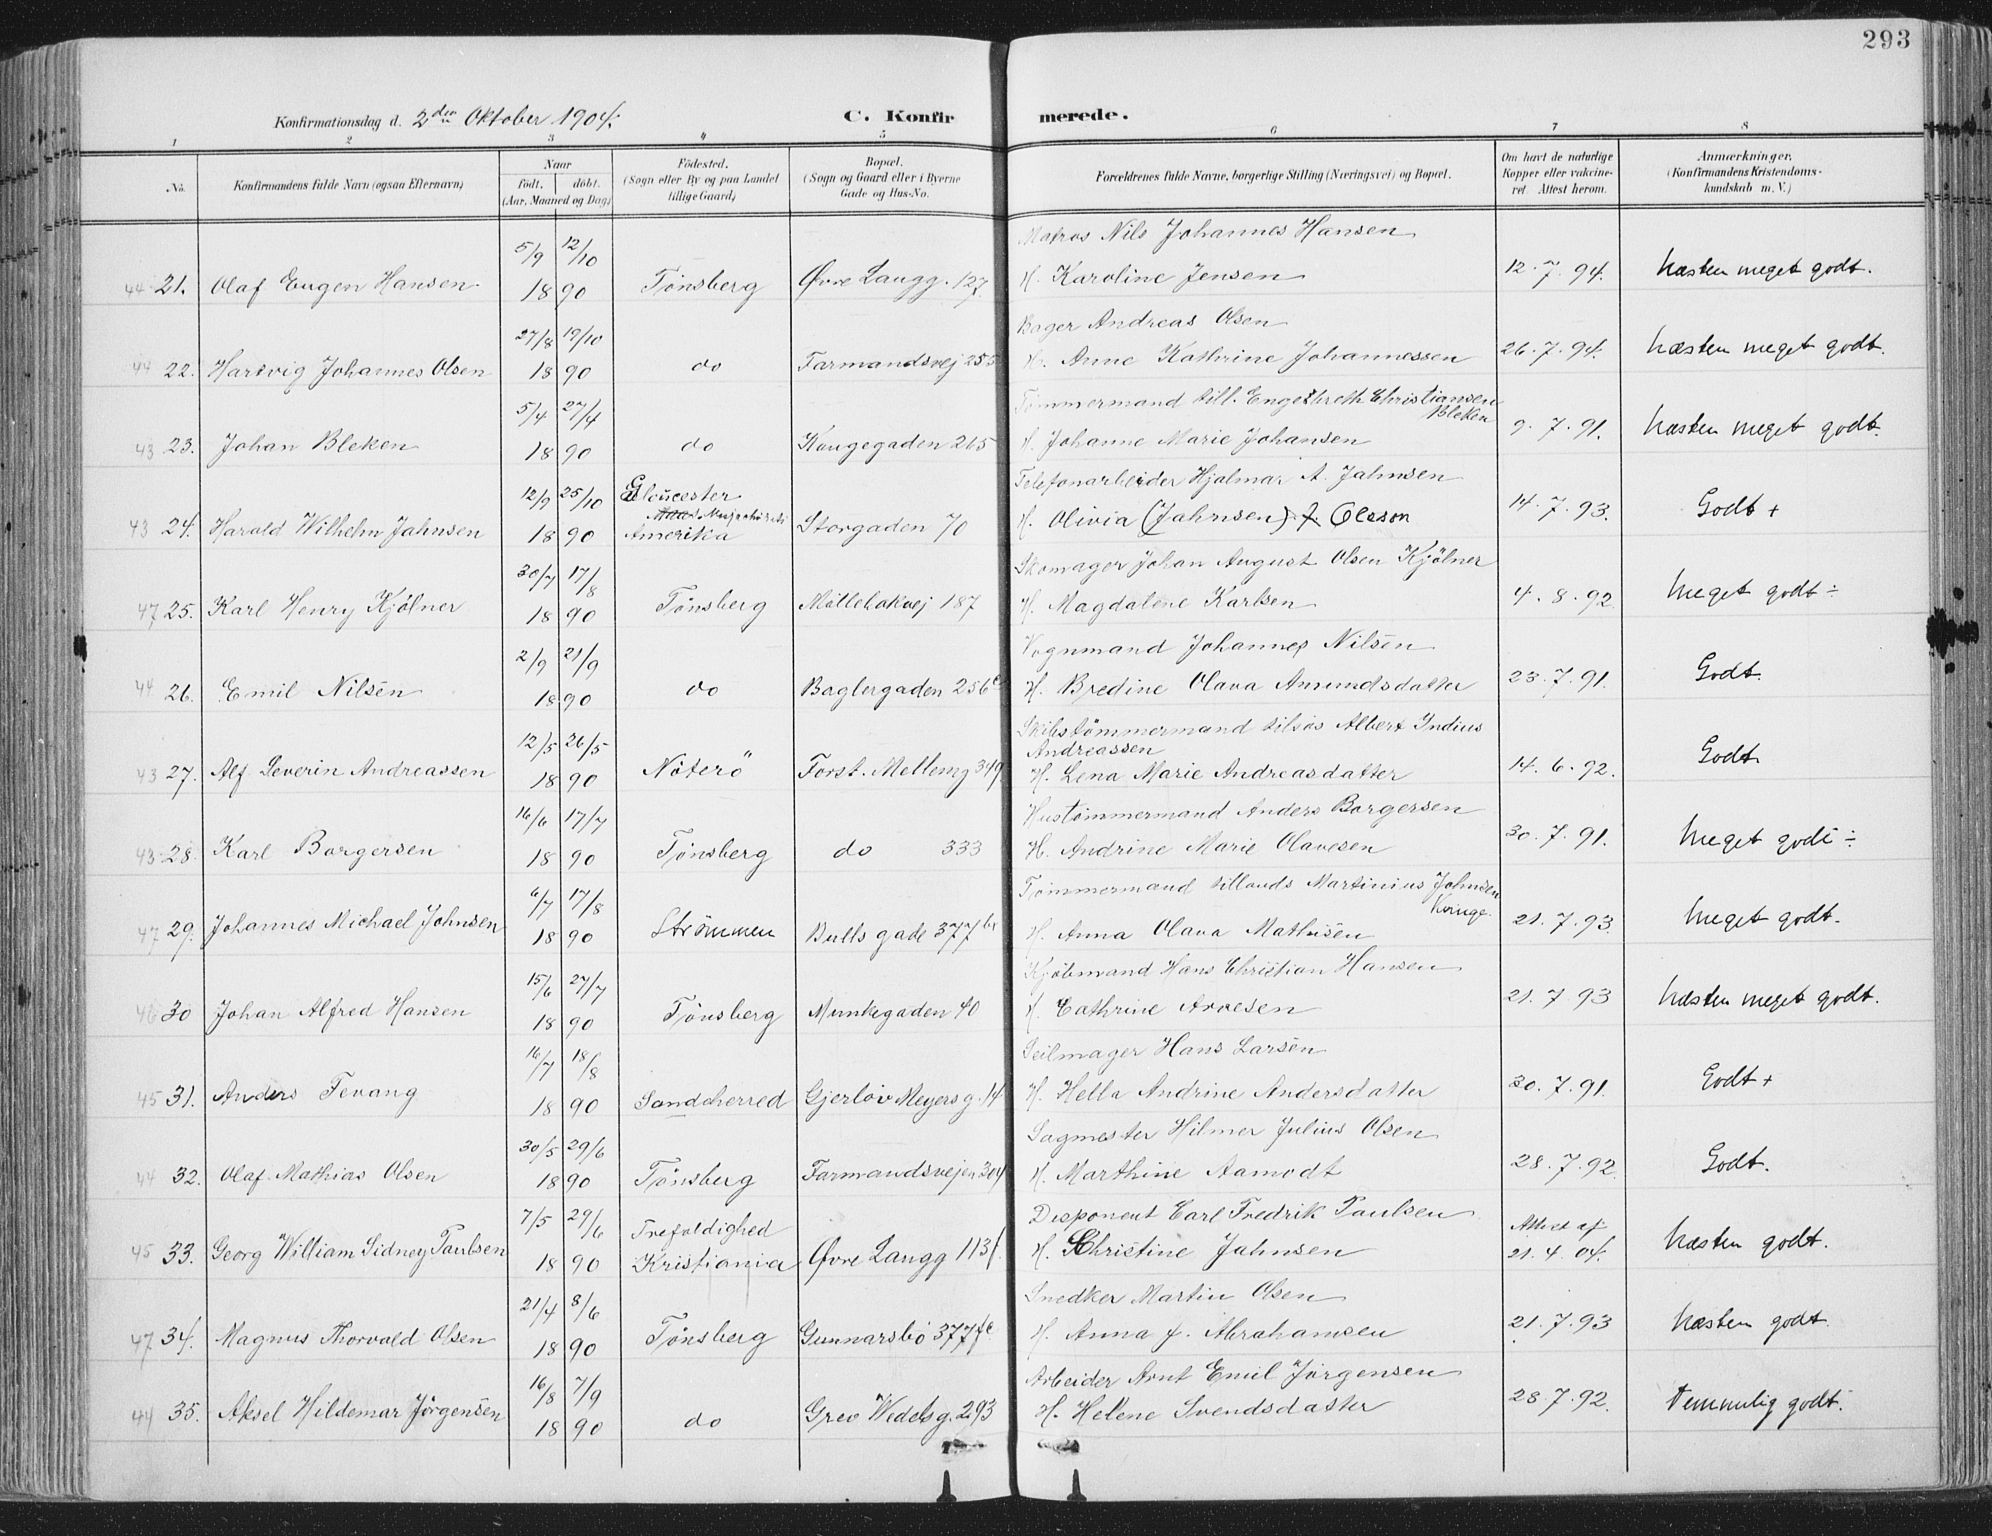 293
Konfirmationsdag d. 2den Oktober 1904.
C. Konfirmerede.
1 2 3 4 5 6 7 8
No. Konfirmandens fulde Navn (ogsaa Efternavn) Naar født. døbt. (Aar, Maaned og Dag) Fødested. (Sogn eller By og paa Landet tillige Gaard) Bopæl. (Sogn og Gaard eller i Byerne Gade og Hus-No. Forældrenes fulde Navne, borgerlige Stilling (Næringsvei) og Bopæl. Om havt de naturlige Kopper eller vakcineret. Attest herom. Anmærkninger. (Konfirmandens Kristendomskundskab m. V.)
5/9 12/10 Matros Nils Johannes Hansen
44 21. Olaf Eugen Hansen 18 90 Tønsberg Øvre Langg. 127 H. Karoline Jensen 12.7.94. Næsten meget godt.
27/8 19/10 Bager Andreas Olsen
44 22. Hartvig Johannes Olsen 18 90 do Farmandsvej 255 H. Anne Kathrine Johannessen 26.7.94. Næsten meget godt.
5/4 27/4 Tømmermand till. Engebreth Christiansen Bleken
43 23. Johan Bleken 18 90 do Kongegaden 265 H. Johanne Marie Johansen 9.7.91. Næsten meget godt.
12/9 25/10 Gloucester Telefonarbeider Hjalmar A. Jahnsen
43 24. Harald Wilhelm Jahnsen 18 90 Amerika Storgaden 70 H. Olivia (Jahnsen) f. Olsson 14.7.93. Godt +
30/7 17/8 Skomager Johan August Olsen Kjølner
47 25. Karl Henry Kjølner 18 90 Tønsberg Møllebakvej 187 H. Magdalene Karlsen 4.8.92 Meget godt ÷
2/9 21/9 Vognmand Johannes Nilsen
44 26. Emil Nilsen 18 90 do Baglergaden 256c H. Bredine Olava Amundsdatter 23.7.91. Godt.
12/5 26/5 Skibstømmermand tilsøs Albert Indius Andreassen
43 27. Alf Severin Andreassen 18 90 Nøterö Forst. Mellemg 349 H. Lena Marie Andreasdatter 14.6.92. Godt
16/6 17/7 Hustømmermand Anders Borgersen
43 28. Karl Borgersen 18 90 Tønsberg do 333 H. Andrine Marie Olavesen 30.7.91. Meget godt ÷
6/7 17/8 Tømmermand tillands Martinius Johnsen Kringe.
47 29. Johannes Michael Johnsen 18 90 Strömmen Bulls gade 377 H. Anna Olava Mathisen 21.7.93. Meget godt.
15/6 27/7 Kjøbmand Hans Christian Hansen
46 30 Johan Alfred Hansen 18 90 Tønsberg Munkegaden 40 H. Cathrine Arvesen 21.7.93 Næsten meget godt.
16/7 18/8 Seilmager Hans Larsen
45 31. Anders Tevang 18 90 Sandeherred Gjerløv Meyersg. 14 H. Hella Andrine Andersdatter 30.7.91. Godt +
30/5 29/6 Sagmester Hilmer Julius Olsen
44 32. Olaf Mathias Olsen 18 90 Tønsberg Farmandsvejen 304 H. Marthine Aamodt 28.7.92. Godt.
7/5 29/6 Trefoldighed Disponent Carl Fredrik Paulsen Attest af
45 33. Georg William Sidney Paulsen 18 90 Kristiania Øvre Langg 113f. H. Christine Jahnsen 21.4.04. Næsten godt.
21/4 8/6 Snedker Martin Olsen
47 34. Magnus Thorvald Olsen 18 90 Tønsberg Gunnarsbö 377 H. Anna f. Abrahamsen 21.7.93 Næsten godt.
16/8 7/9 Arbeider Arnt Emil Jørgensen
44 35. Aksel Hildemar Jørgensen 18 90 do Grev Wedels g. 293 H. Helene Svendsdatter 28.7.92. Temmelig godt.